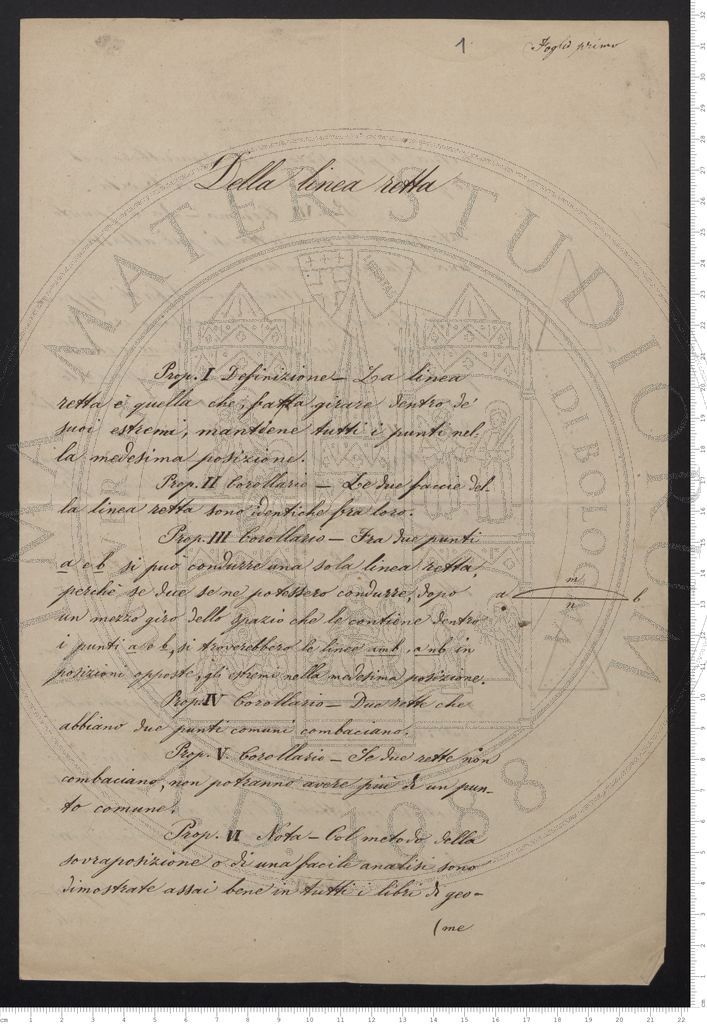 1
Foglio primo
Della linea retta
Prop. I Definizione – La linea
retta è quella che, fatta girare dentro de'
suoi estremi, mantiene tutti i punti nel-
la medesima posizione.
Prop. II Corollario – Le due faccie del-
la linea retta sono identiche fra loro.
Prop. III Corollario – Fra due punti
a e b si può condurre una sola linea retta,
perchè se due se ne potessero condurre, dopo
un mezzo giro dello spazio che le contiene dentro
i punti a e b, si troverebbero le linee amb, anb in
posizioni opposte, gli estremi nella medesima posizione.
a m n b
Prop. IV Corollario – Due rette che
abbiano due punti comuni combaciano.
Prop. V. Corollario – Se due rette non
combaciano, non potranno avere più di un pun-
to comune.
Prop. VI Nota – Col metodo della
sovraposizione o di una facile analisi sono
dimostrate assai bene in tutti i libri di geo-
(me
ALMA MATER STUDIORUM
UNIVER DI BOLOGNA
A.D. 1088
LIBERTAS